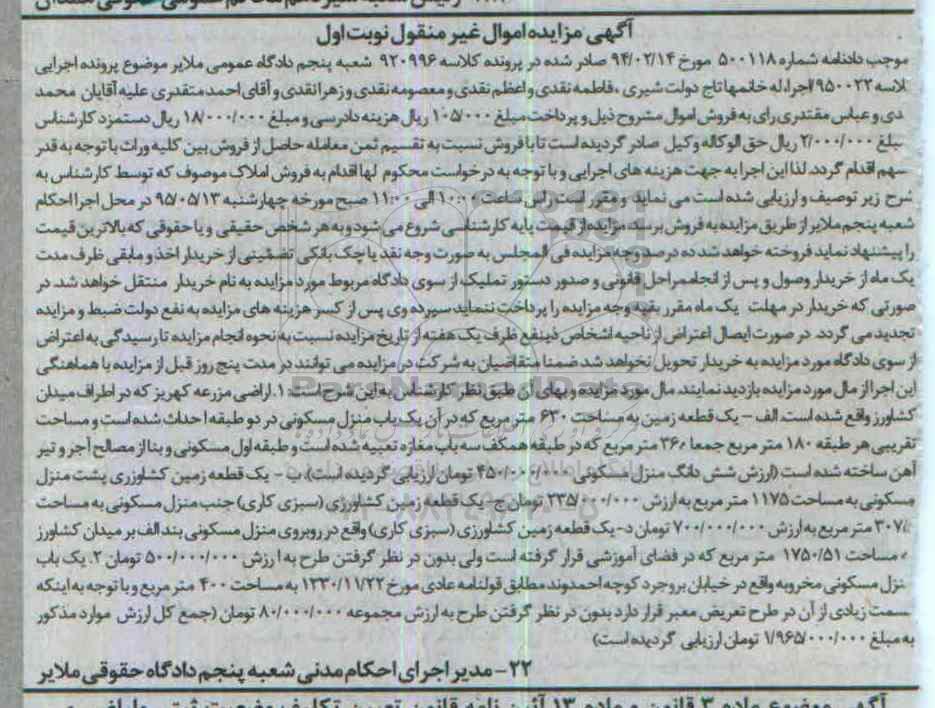 آگهی مزایده اموال غیر منقول نوبت اول
موجب دادنامه شماره ۵۰۰۱۱۸ مورخ ۹۴/۰۲/۱۴ صادر شده در پرونده کلاسه ۹۲۰۹۹۶ شعبه پنجم دادگاه عمومی ملایر موضوع پرونده اجرایی
لاسه ۹۵۰۰۲۲ اجرا، له خانمها تاج دولت شیری ، فاطمه نقدی و اعظم نقدی و معصومه نقدی و زهرا نقدی و آقای احمد متقدری علیه آقایان محمد
دی و عباس مقتدری رای به فروش اموال مشروح ذیل و پرداخت مبلغ ۱۰۵/۰۰۰ ریال هزینه دادرسی و مبلغ ۱۸/۰۰۰/۰۰۰ ریال دستمزد کارشناس
مبلغ ۲/۰۰۰/۰۰۰ ریال حق الوکاله وکیل صادر گردیده است تا با فروش نسبت به تقسیم ثمن معامله حاصل از فروش بین کلیه وراث با توجه به قدر
سهم اقدام گردد. لذا این اجرا به جهت هزینه های اجرایی و با توجه به درخواست محکوم لها اقدام به فروش املاک موصوف که توسط کارشناس به
شرح زیر توصیف و ارزیابی شده است می نماید و مقرر است راس ساعت ۱۰:۰۰ الی ۱۱:۰۰ صبح مورخه چهارشنبه ۹۵/۰۵/۱۳ در محل اجرا احکام
شعبه پنجم ملایر از طریق مزایده به فروش برسد. مزایده از قیمت پایه کارشناسی شروع می شود و به هر شخص حقیقی و یا حقوقی که بالاترین قیمت
را پیشنهاد نماید فروخته خواهد شد ده درصد وجه مزایده فی المجلس به صورت وجه نقد یا چک بانکی تضمینی از خریدار اخذ و مابقی ظرف مدت
یک ماه از خریدار وصول و پس از انجام مراحل قانونی و صدور دستور تملیک از سوی دادگاه مربوط مورد مزایده به نام خریدار منتقل خواهد شد. در
صورتی که خریدار در مهلت یک ماه مقرر بقیه وجه مزایده را پرداخت ننماید سپرده وی پس از کسر هزینه های مزایده به نفع دولت ضبط و مزایده
تجدید می گردد. در صورت ایصال اعتراض از ناحیه اشخاص ذینفع ظرف یک هفته از تاریخ مزایده نسبت به نحوه انجام مزایده تا رسیدگی به اعتراض
از سوی دادگاه مورد مزایده به خریدار تحویل نخواهد شد ضمنا متقاضیان به شرکت در مزایده می توانند در مدت پنج روز قبل از مزایده با هماهنگی
این اجرا از مال مورد مزایده بازدید نمایند. مال مورد مزایده و بهای آن طبق نظر کارشناس به این شرح است: ۱. اراضی مزرعه کهریز که در اطراف میدان
کشاورز واقع شده است. الف - یک قطعه زمین به مساحت ۶۳۰ متر مربع که در آن یک باب منزل مسکونی در دو طبقه احداث شده است و مساحت
تقریبی هر طبقه ۱۸۰ متر مربع جمعا ۳۶۰ متر مربع که در طبقه همکف سه باب مغازه تعبیه شده است و طبقه اول مسکونی و بنا از مصالح آجر و تیر
آهن ساخته شده است (ارزش شش دانگ منزل مسکونی ۴۵۰/۰۰۰/۰۰۰ تومان ارزیابی گردیده است). ب - یک قطعه زمین کشاورزی پشت منزل
مسکونی به مساحت ۱۱۷۵ متر مربع به ارزش ۲۳۵/۰۰۰/۰۰۰ تومان ج- یک قطعه زمین کشاورزی (سبزی کاری) جنب منزل مسکونی به مساحت
۳۰۷ متر مربع به ارزش ۷۰۰/۰۰۰/۰۰۰ تومان د- یک قطعه زمین کشاورزی (سبزی کاری) واقع در روبروی منزل مسکونی بند الف بر میدان کشاورز
مساحت ۱۷۵۰/۵۱ متر مربع که در فضای آموزشی قرار گرفته است ولی بدون در نظر گرفتن طرح به ارزش ۵۰۰/۰۰۰/۰۰۰ تومان ۲. یک باب
منزل مسکونی مخروبه واقع در خیابان بروجرد کوچه احمدوند مطابق قولنامه عادی مورخ ۱۳۳۰/۱۱/۲۲ به مساحت ۴۰۰ متر مربع و با توجه به اینکه
سمت زیادی از آن در طرح تعریض معبر قرار دارد بدون در نظر گرفتن طرح به ارزش مجموعه ۸۰/۰۰۰/۰۰۰ تومان (جمع کل ارزش موارد مذکور
به مبلغ ۱/۹۶۵/۰۰۰/۰۰۰ تومان ارزیابی گردیده است)
۲۲- مدیر اجرای احکام مدنی شعبه پنجم دادگاه حقوقی ملایر
آگهی موضوع ماده ۳ قانون و ماده ۱۳ آئین نامه قانون تعیین تکلیف وضعیت ثبتی
ParsNamadData